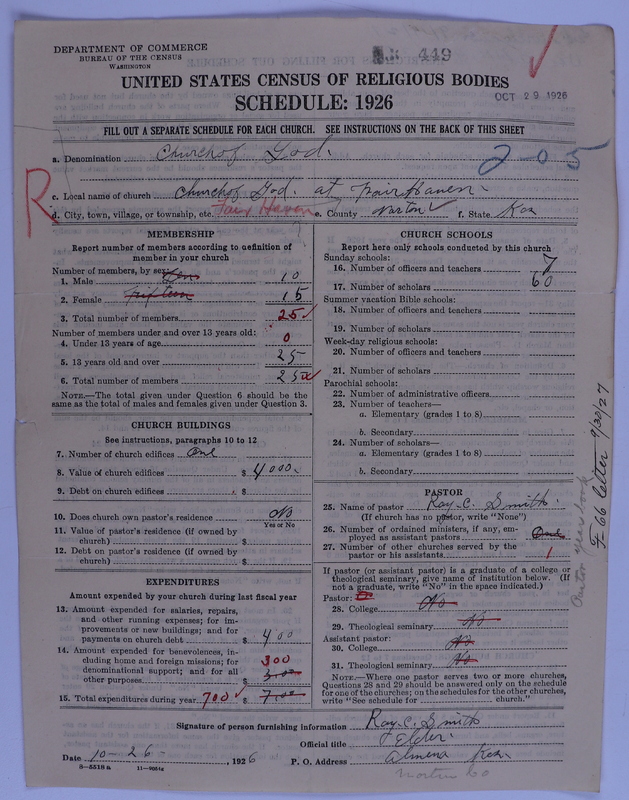 DEPARTMENT OF COMMERCE
BUREAU OF THE CENSUS
WASHINGTON
449
UNITED STATES CENSUS OF RELIGIOUS BODIES
SCHEDULE: 1926
OCT 29 1926
FILL OUT A SEPARATE SCHEDULE FOR EACH CHURCH. SEE INSTRUCTIONS ON THE BACK OF THIS SHEET
a. Denomination Church of God.
2-05
R
c. Local name of church Church of God. at Fair Haven.
d. City, town, village, or township, etc. Fair Haven e. County Norton f. State Kan
MEMBERSHIP
Report number of members according to definition of
member in your church
Number of members, by sex:
1. Male Ten 10
2. Female Fifteen 15
3. Total number of members 25
Number of members under and over 13 years old:
4. Under 13 years of age 0
5. 13 years old and over 25
6. Total number of members 25
NOTE.—The total given under Question 6 should be
same as the total of males and females given under Question 3.
CHURCH BUILDINGS
See instructions, paragraphs 10 to 12
7. Number of church edifices One
8. Value of church edifices $ 4000.
9. Debt on church edifices $
10. Does church own pastor's residence No
Yes or No
11. Value of pastor's residence (if owned by
church) $
12. Debt on pastor's residence (if owned by
church) $
EXPENDITURES
Amount expended by your church during last fiscal year
13. Amount expended for salaries, repairs,
and other running expenses; for im-
provements or new buildings; and for
payments on church debt $ 400
14. Amount expended for benevolences, in-
cluding home and foreign missions; for
denominational support; and for all
other purposes $ 300
15. Total expenditures during year 700 $ 7.00
CHURCH SCHOOLS
Report here only schools conducted by this church
Sunday schools:
16. Number of officers and teachers 7
17. Number of scholars 60
Summer vacation Bible schools:
18. Number of officers and teachers
19. Number of scholars
Week-day religious schools:
20. Number of officers and teachers
21. Number of scholars
Parochial schools:
22. Number of administrative officers
23. Number of teachers—
a. Elementary (grades 1 to 8)
b. Secondary
24. Number of scholars—
a. Elementary (grades 1 to 8)
b. Secondary
PASTOR
25. Name of pastor Ray. C. Smith.
(If church has no pastor, write "None")
26. Number of ordained ministers, if any, em-
ployed as assistant pastors One
27. Number of other churches served by the
pastor or his assistants 1
If pastor (or assistant pastor) is a graduate of a college or
theological seminary, give name of institution below. (If
not a graduate, write "No" in the space indicated.)
Pastor:
28. College No
29. Theological seminary No
Assistant pastor:
30. College No
31. Theological seminary No
NOTE.—Where one pastor serves two or more churches,
Questions 28 and 29 should be answered only on the schedule
for one of the churches; on the schedules for the other churches,
write "See schedule for church."
Pastor year book
F-66 letter 9/30/27
Signature of person furnishing information Ray. C. Smith
Official title Elder.
Date 10-26-, 1926 P. O. Address Almena Kan
Norton Co
8-5518 a